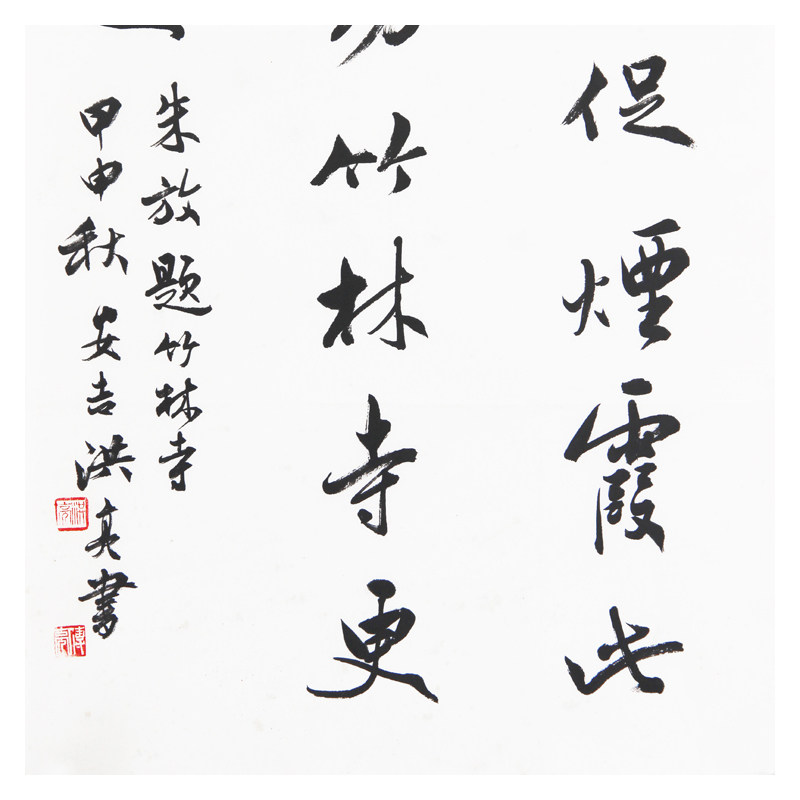 促煙霞此
竹林寺更
朱放题竹林寺
甲申秋安吉洪亮書